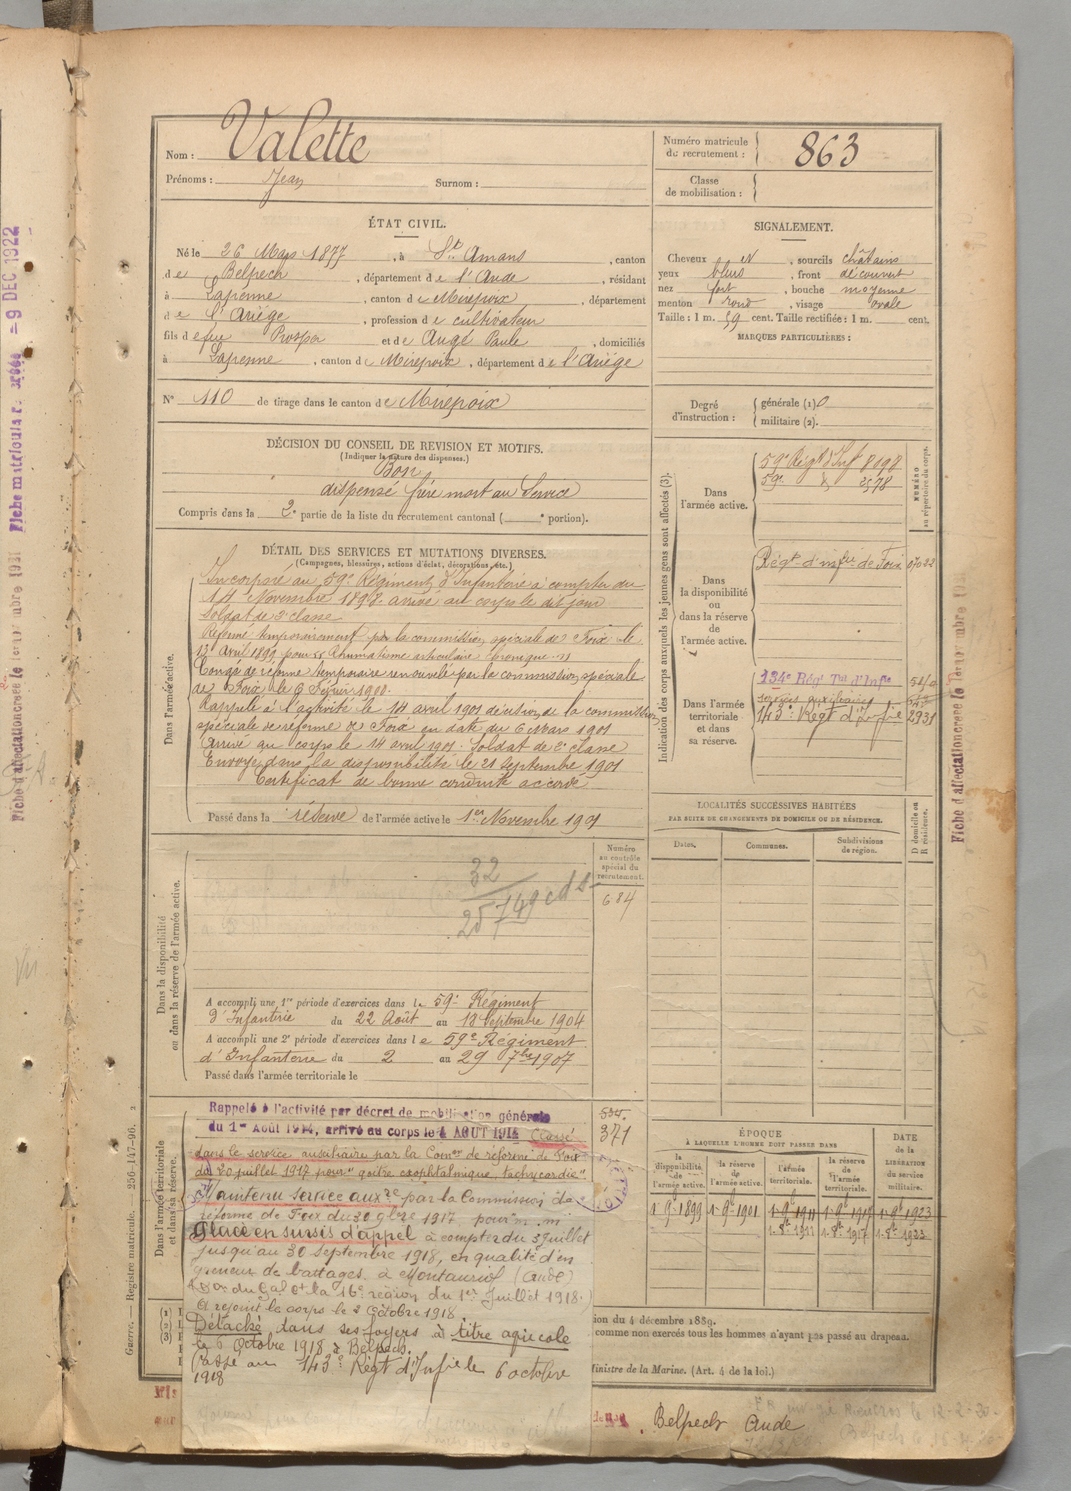 Nom : Valette
Prénoms : Jean Surnom :
Numéro matricule du recrutement : 863
Classe de mobilisation :
ÉTAT CIVIL.
Né le 26 Mars 1877, à St Amans, canton
de Belpech, département de l'Aude, résidant
à Lapenne, canton de Mirepoix, département
de l'Ariège, profession de cultivateur
fils de feu Prosper et de Auge Paule, domiciliés
à Lapenne, canton de Mirepoix, département de l'Ariège
N° 110 de tirage dans le canton de Mirepoix
SIGNALEMENT.
Cheveux N, sourcils châtains
yeux bleus, front découvert
nez fort, bouche moyenne
menton rond, visage ovale
Taille : 1 m. 59 cent. Taille rectifiée : 1 m. cent.
MARQUES PARTICULIÈRES :
Degré d'instruction : générale (1) 0
militaire (2).
DÉCISION DU CONSEIL DE REVISION ET MOTIFS.
(Indiquer la nature des dispenses.)
Bon
dispensé frère mort au Service
Compris dans la 2e partie de la liste du recrutement cantonal ( e portion).
DÉTAIL DES SERVICES ET MUTATIONS DIVERSES.
(Campagnes, blessures, actions d'éclat, décorations, etc.)
Dans l'armée active.
Incorporé au 59e Régiment d'Infanterie à compter du
14 Novembre 1898 arrivé au corps le dit jour
Soldat de 2e classe
Réformé temporairement par la commission spéciale de Foix le
13 Avril 1899 pour Rhumatisme articulaire chronique
Congé de réforme temporaire renouvelé par la commission spéciale
de Foix le 6 1900.
Rappelé à l'activité le 14 avril 1901 décision de la commission
spéciale de réforme de Foix en date du 6 Mars 1901
Arrivé au corps le 14 avril 1901. Soldat de 2e classe
Envoyé dans la disponibilité le 21 Septembre 1901
Certificat de bonne conduite accordé
Passé dans la réserve de l'armée active le 1er Novembre 1901
Indication des corps auxquels les jeunes gens sont affectés (3).
NUMÉRO au répertoire du corps.
Dans l'armée active.
59e Régt d'Inf 8098
59e 2578
Dans la disponibilité ou dans la réserve de l'armée active.
Régt d'infie de Foix 07022
Dans l'armée territoriale et dans sa réserve.
134e Rég Tal d'Infie
services auxiliaires
143e Régt d'infie 2931
LOCALITÉS SUCCESSIVES HABITÉES
PAR SUITE DE CHANGEMENTS DE DOMICILE OU DE RÉSIDENCE.
Dates. Communes. Subdivisions de région. D domicile ou R résidence.
Dans la disponibilité ou dans la réserve de l'armée active.
Numéro au contrôle spécial du recrutement.
684
32
25749
A accompli une 1re période d'exercices dans le 59e Régiment
d'Infanterie du 22 Août au 18 Septembre 1904
A accompli une 2e période d'exercices dans le 59e Régiment
d'Infanterie du 2 au 29 7bre 1907
Passé dans l'armée territoriale le
Dans l'armée territoriale et dans sa réserve.
Rappelé à l'activité par décret de mobilisation générale
du 1er Août 1914, arrivé au corps le 4 AOUT 1914 Classé
dans le service auxiliaire par la Comon de réforme de Foix
du 20 juillet 1917 pour "goitre exophtalmique, tachycardie"
Maintenu service auxre par la Commission de
réforme de Foix du 30 9bre 1917 pour m. mi
Placé en sursis d'appel à compter du 3 juillet
jusqu'au 30 septembre 1918, en qualité d'en
preneur de battages à Montauriol (Aude)
Don du Gal Ct la 16e région du 1er Juillet 1918.)
A rejoint le corps le 2 Octobre 1918
Détaché dans ses foyers à titre agricole
le 6 Octobre 1918 à Belpech.
Passé au 143e Régt d'Infie le 6 octobre
1918
371
ÉPOQUE
À LAQUELLE L'HOMME DOIT PASSER DANS
la disponibilité de l'armée active. la réserve de l'armée active. l'armée territoriale. la réserve de l'armée territoriale.
DATE DE LA LIBÉRATION du service militaire.
1-9-1899 1-9-1901 1-9-1911 1-9-1917 1-9-1923
1-8-1911 1-8-1917 1-8-1923
ion du 4 décembre 1889.
comme non exercés tous les hommes n'ayant pas passé au drapeau.
Ministre de la Marine. (Art. 4 de la loi.)
Belpech Aude
Guerre. — Registre matricule. 256-147-96.
9 DEC 1922
Fiche d'affectation créée le 1er novembre 1931